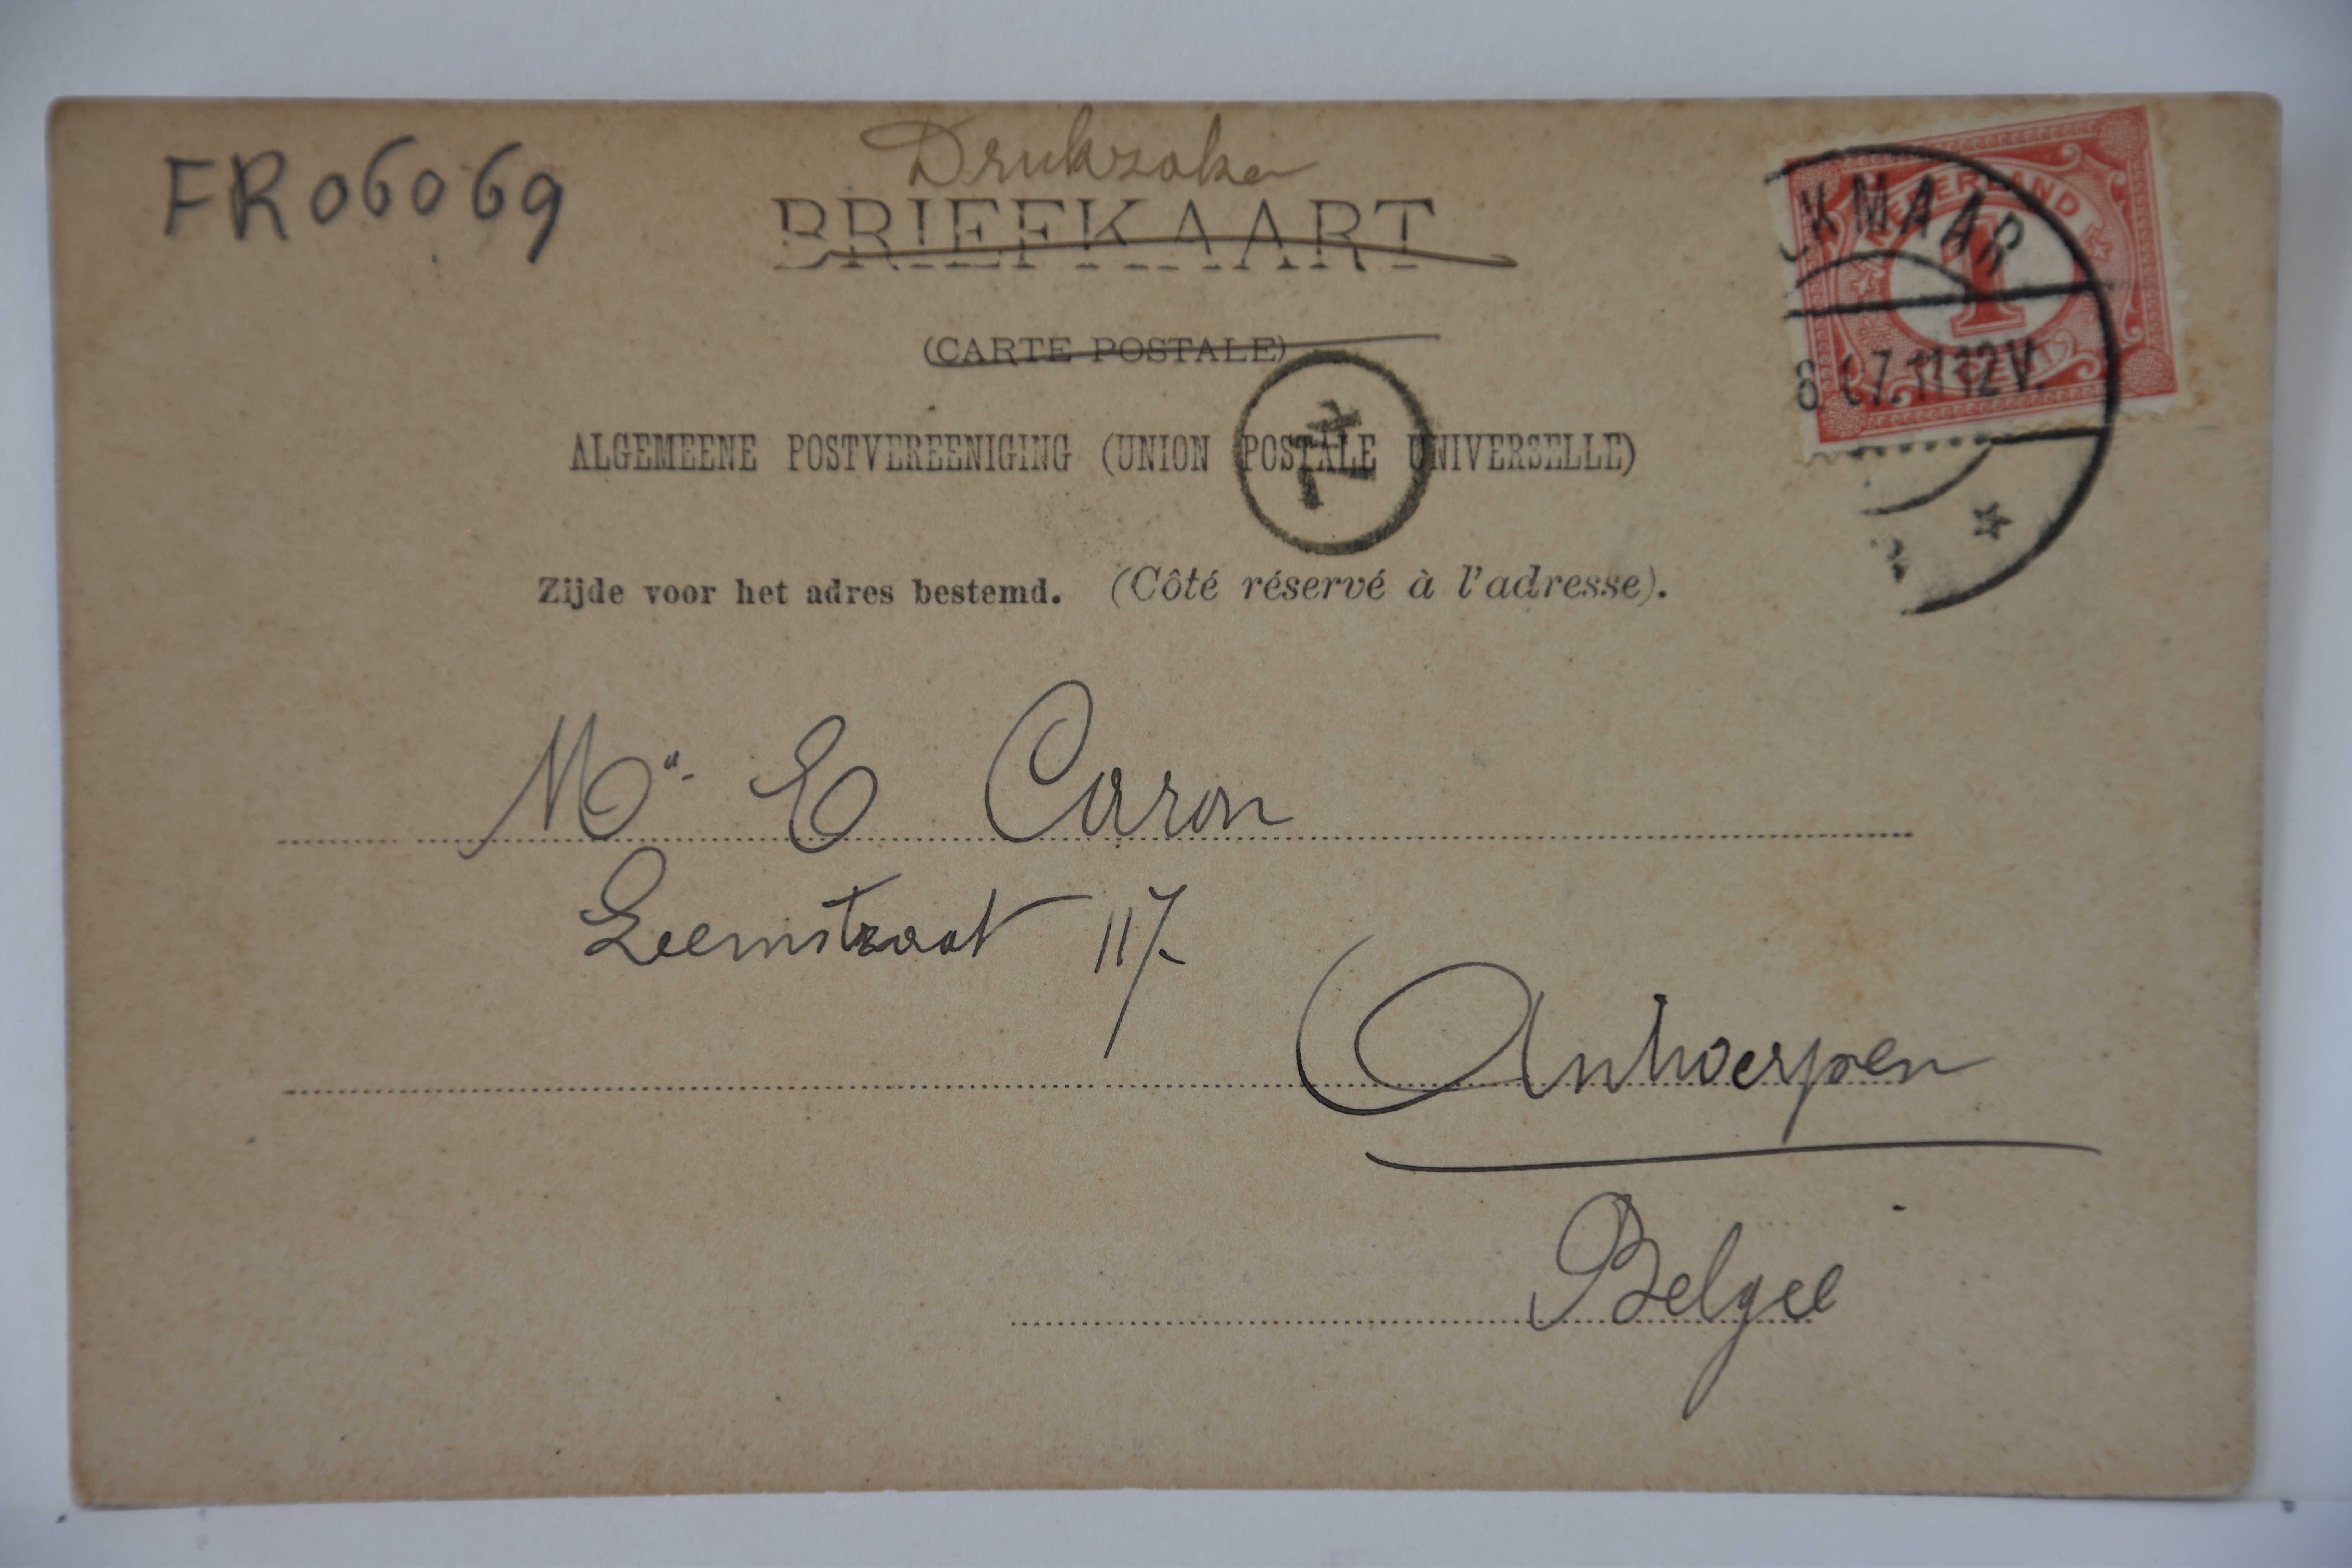 FR06069
Drukzaken
BRIEFKAART
(CARTE POSTALE)
ALGEMEENE POSTVEREENIGING (UNION POSTALE UNIVERSELLE)
Zijde voor het adres bestemd. (Côté réservé à l'adresse).
NEDERLAND
1
CENT
KMAAR
11-12V.
T
E Caron
Leemstraat 117
Antwerpen
Belgie